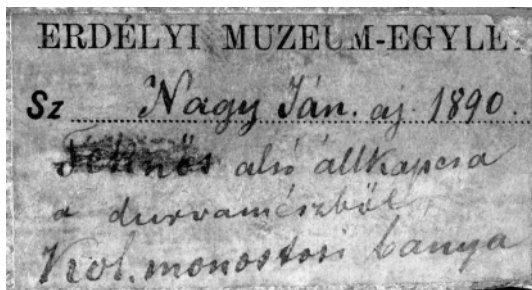 ERDÉLYI MUZEUM-EGYLET
Sz Nagy Ján. aj. 1890.
alsó állkapcsa
a durvamészből
Kol. monostori banya